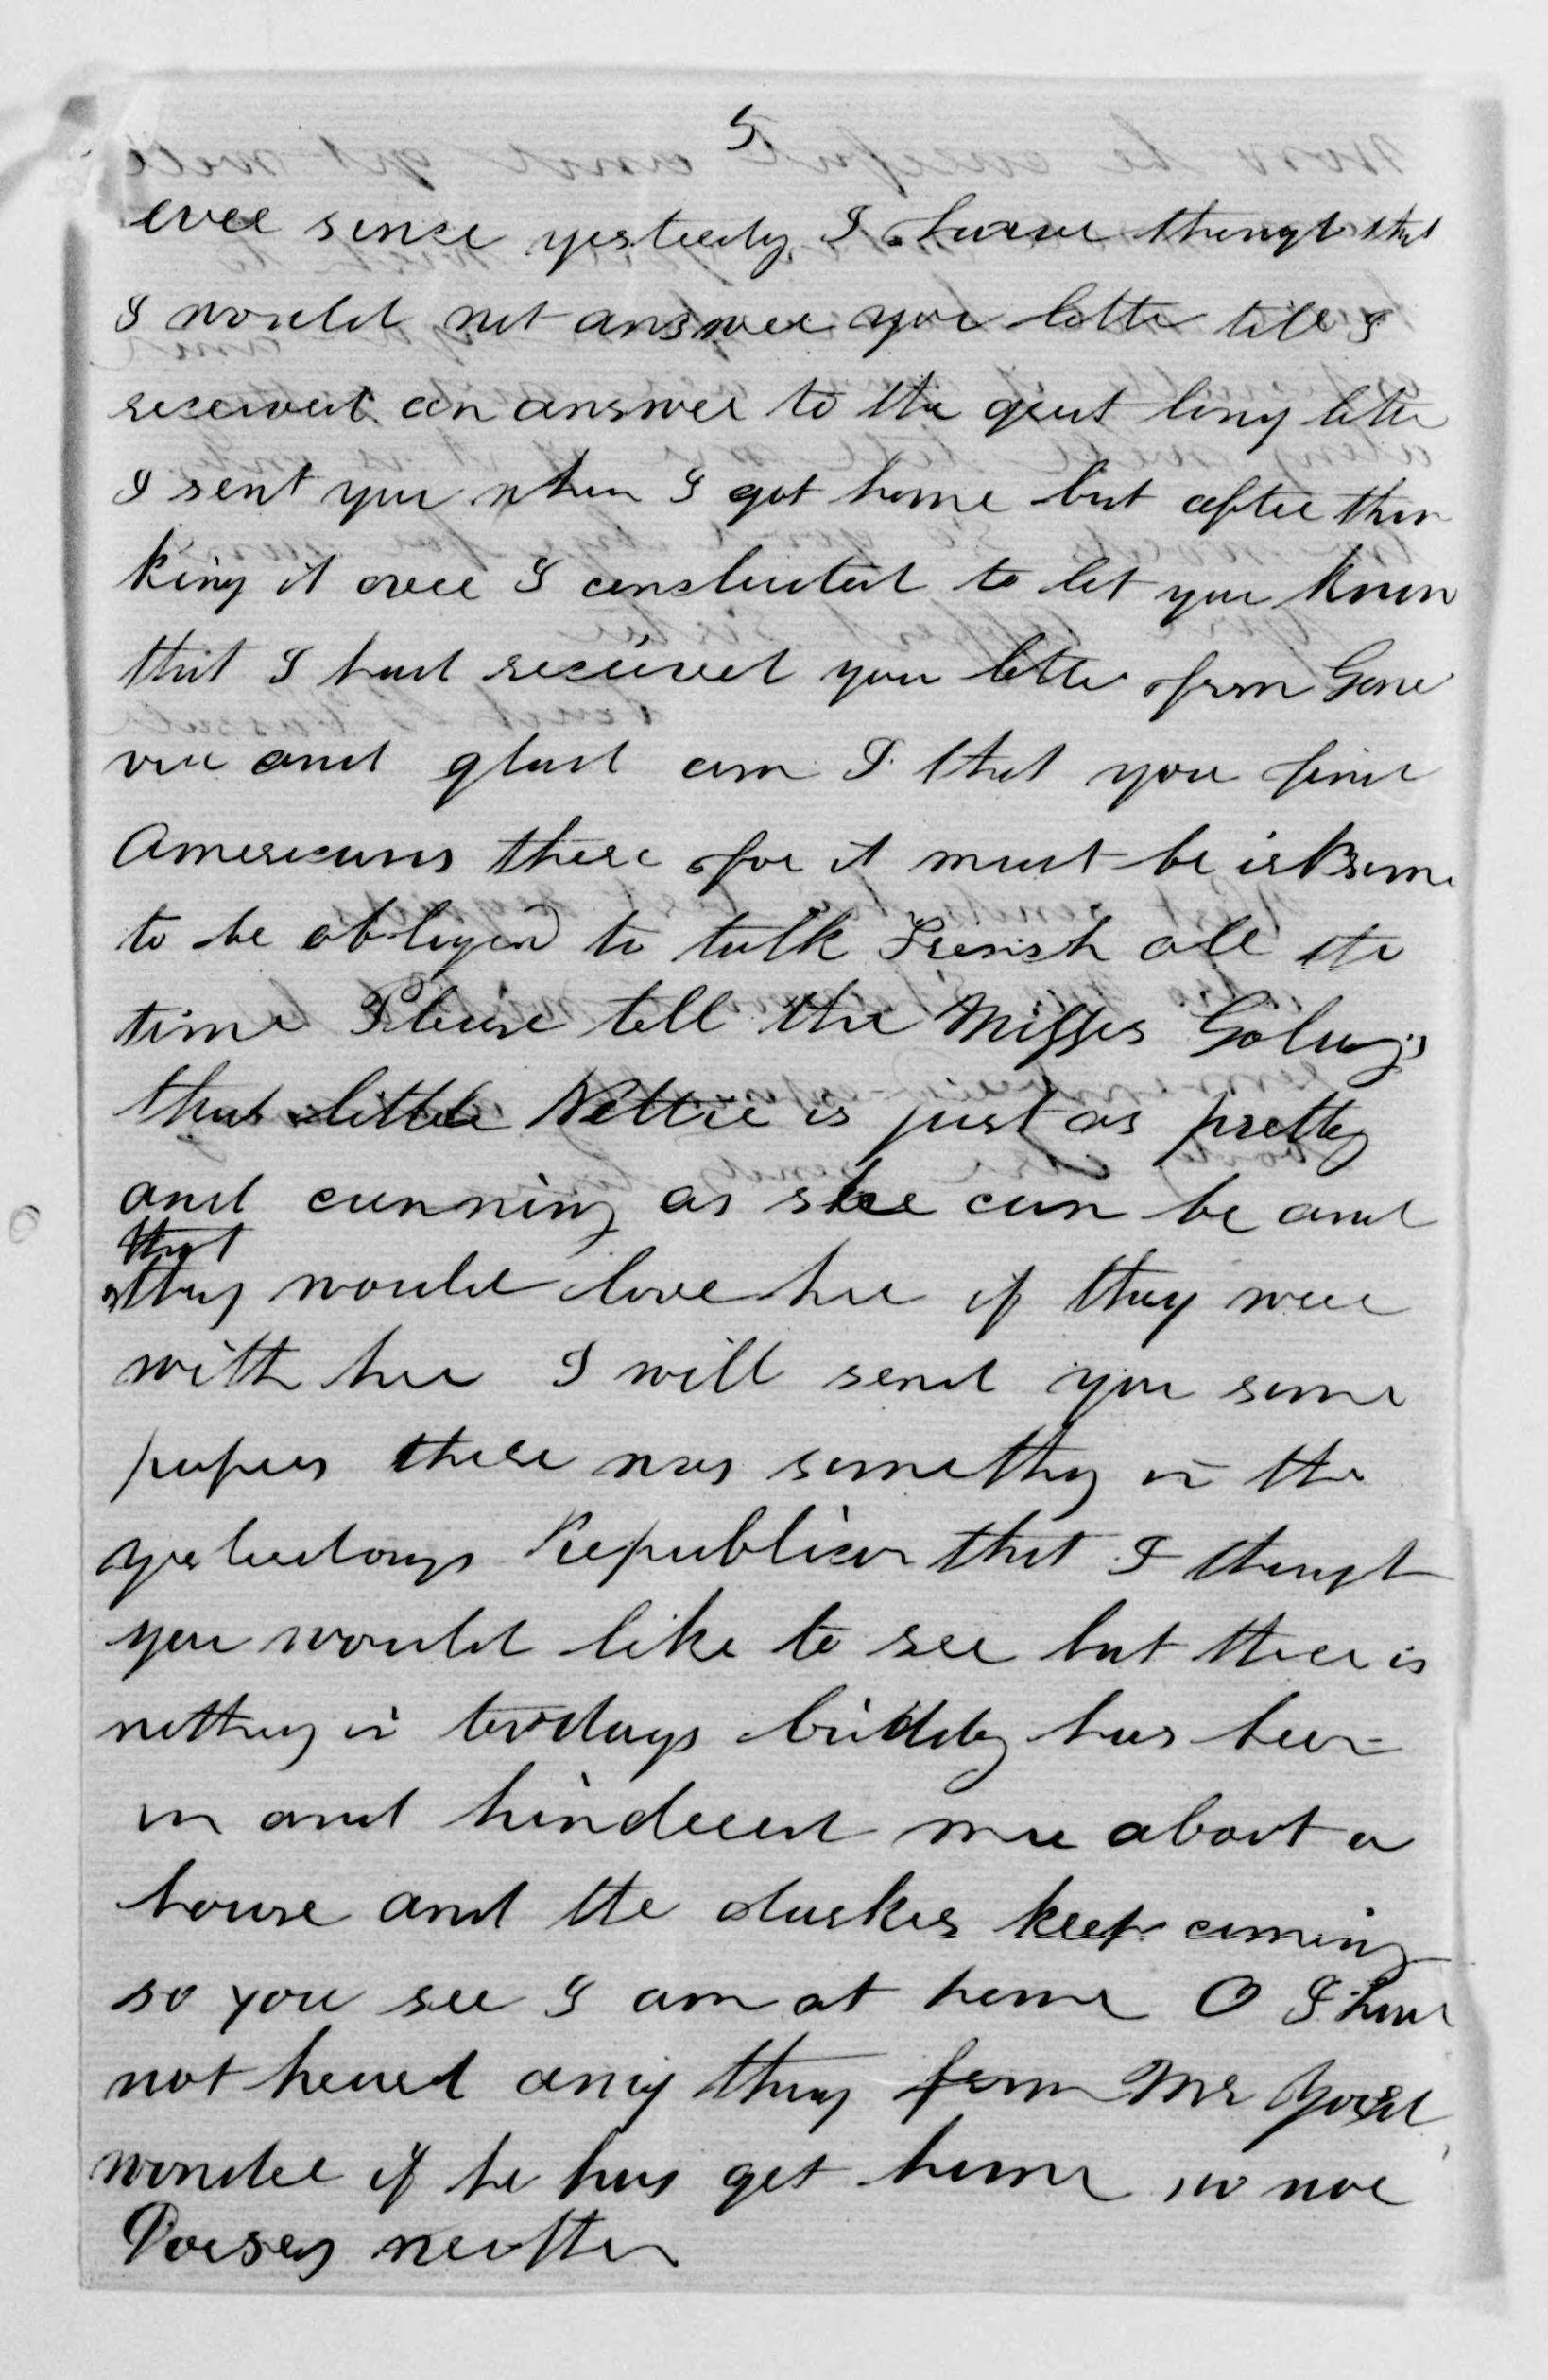 5
ever since yesterdy, I have thought that
I would not answer you letter till I
received an answer to the great long letter
I sent you when I got home but after thin
king it over I concluded to let you know
that I had received your letter from Gene
va and glad am I that you find
Americans there for it must be irksome
to be obliged to talk French all the
time Please tell the Misses
that little Nettie is just as pretty
and cunning as she can be and
that
they would love her if they were
with her I will send you some
papers there was something in the
yesterdays Republican that I thought
you would like to see but there is
nothing in todays biddy has been
in and hindered me about a
house and the darkies keep coming
so you see I am at home O I have
not heared any thing from Mr
wonder if he has got home no nor
Dorsey neither